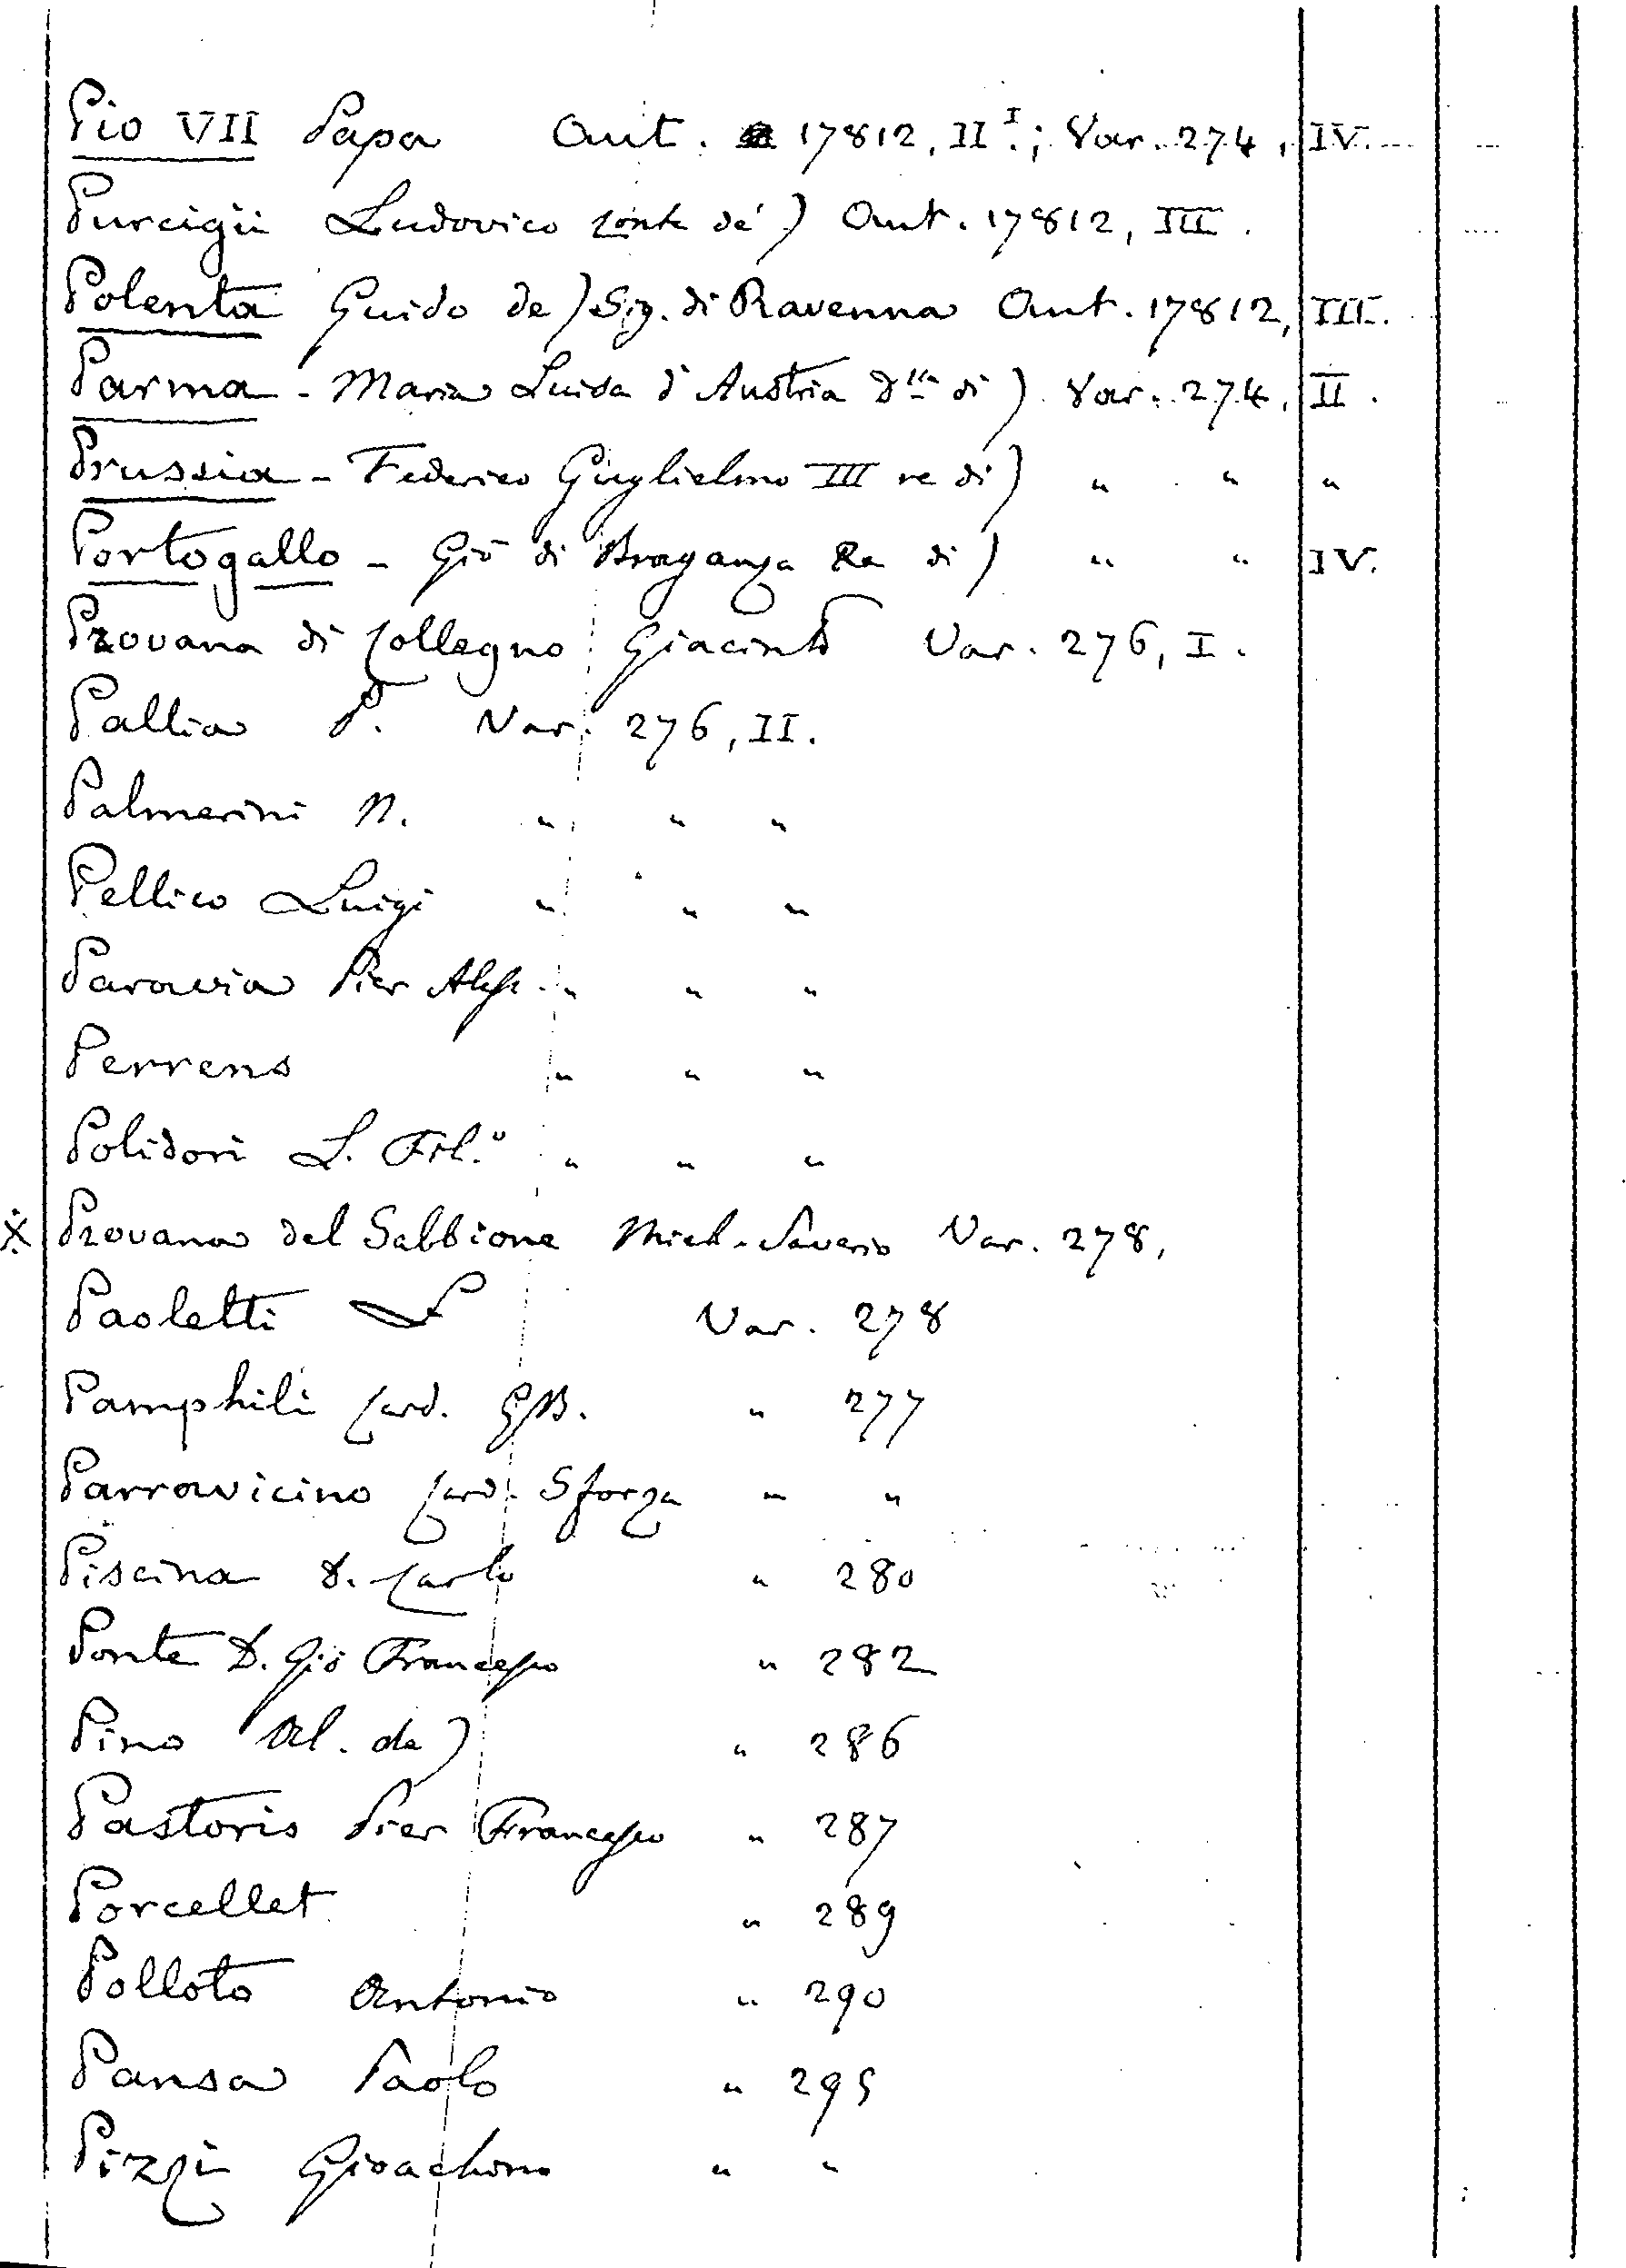 Pio VII Papa Aut. 17812, II I.; Var. 274, IV.
Purcigii Ludovico conte de') Aut. 17812, III.
Polenta Guido de) Sig. di Ravenna Aut. 17812, III.
Parma - Maria Luisa d'Austria D.ssa di) Var. 274, II.
Prussia - Federico Guglielmo III re di) " " "
Portogallo - Giō di Braganza Re di) " " IV.
Provana di Collegno Giacinto Var. 276, I.
Pallia P. Var. 276, II.
Palmerini N. " " "
Pellico Luigi " " "
Paravia Pier Aless. " " "
Perrens " " "
Polidori L. Fil.º " " "
Provana del Sabbione Mich. Saverio Var. 278,
Paoletti Var. 278
Pamphili Card. GB. " 277
Parravicino Card. Sforza " "
Piscina D. Carlo " 280
Ponte D. Giō Francesco " 282
Pino Al. da) " 286
Pastoris Pier Francesco " 287
Porcellet " 289
Polloto Antonio " 290
Pansa Paolo " 295
Pizzi Gioachino " "